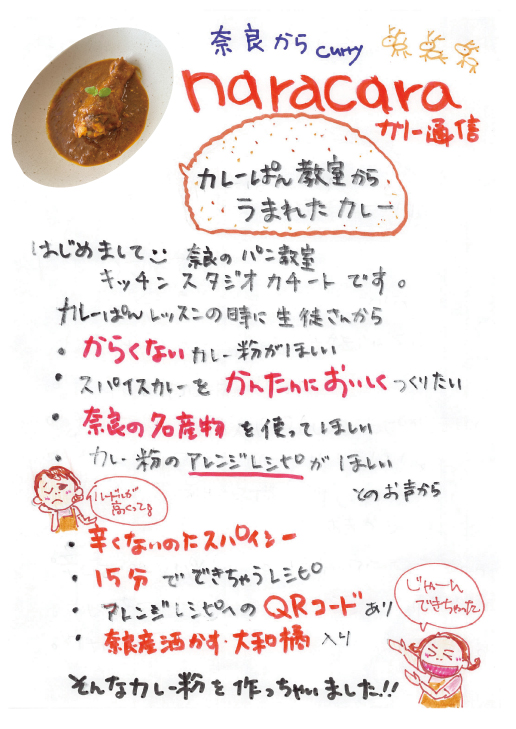 奈良から curry
naracara
カリー通信
カレーぱん教室から
うまれたカレー
はじめまして 奈良のパン教室
キッチンスタジオカチートです。
カレーぱんレッスンの時に生徒さんから
・からくないカレー粉がほしい
・スパイスカレーをかんたんにおいしくつくりたい
・奈良の名産物を使ってほしい
・カレー粉のアレンジレシピがほしい
とのお声から
ハードルが
高くってさ
・辛くないのにスパイシー
・15分でできちゃうレシピ
・アレンジレシピへのQRコードあり
・奈良産酒かす・大和橘入り
じゃーん
できちゃった
そんなカレー粉を作っちゃいました!!